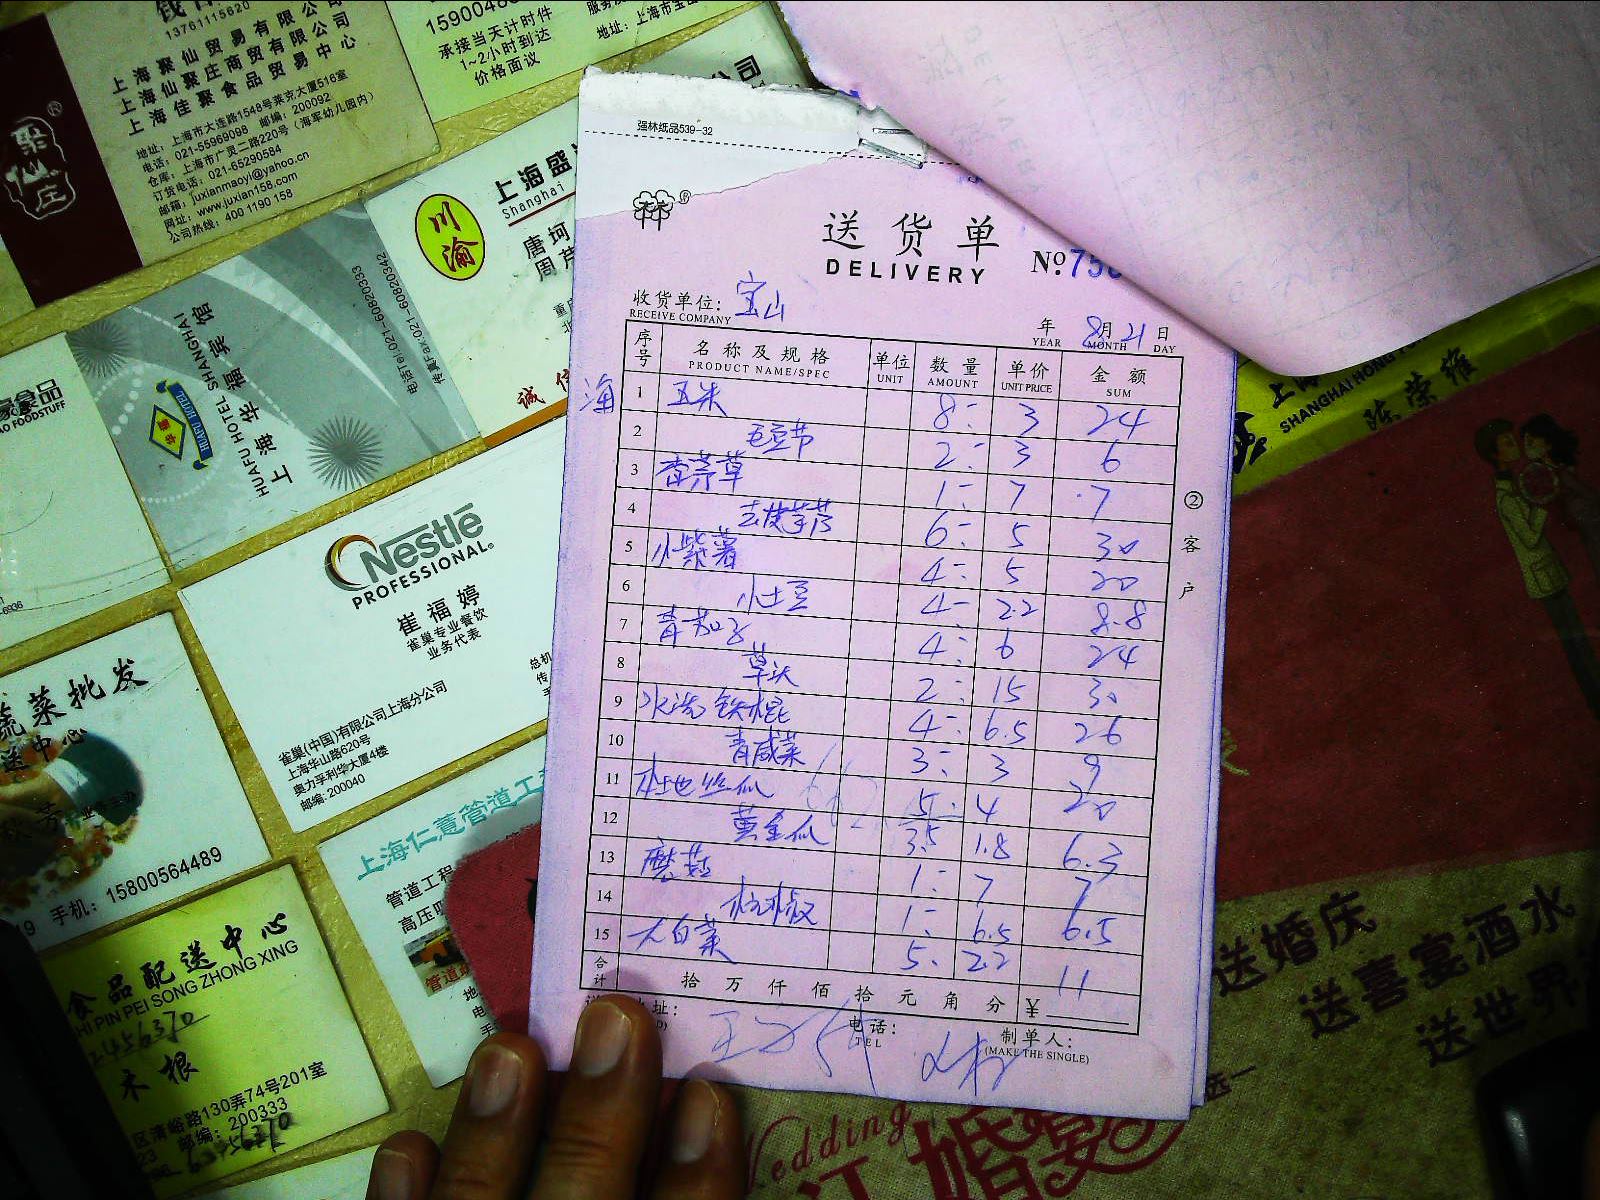 13761115620
上海聚仙贸易有限公司
上海仙聚庄商贸有限公司
上海佳聚食品贸易中心
地址：上海市大连路1548号莱克大厦516室
电话：021-55969098 邮编：200092
仓库：上海市广灵二路220号（海军幼儿园内）
订货电话：021-65290584
邮箱：juxianmaoyi@yahoo.cn
网址：www.juxian158.com
公司热线：400 1190 158
聚仙庄
®
承接当天计时件
1~2小时到达
价格面议
公司
川渝
上海盛
Shanghai
唐坷
诚信
电话Tel:021-60820333
传真Fax:021-60820342
上海华福宾馆
HUAFU HOTEL SHANGHAI
HUAFU HOTEL
食品
FOODSTUFF
Nestlé
PROFESSIONAL®
崔福婷
雀巢专业餐饮
业务代表
雀巢(中国)有限公司上海分公司
上海华山路620号
奥力孚利华大厦4楼
邮编: 200040
蔬菜批发
送中心
手机：15800564489
上海仁薏管道工
管道工程
食品配送中心
SHI PIN PEI SONG ZHONG XING
木根
区清峪路130弄74号201室
邮编：200333
强林纸品539-32
送货单
DELIVERY
No.
收货单位：宝山
RECEIVE COMPANY
年 8月21日
YEAR MONTH DAY
序号 名称及规格 单位 数量 单价 金额
PRODUCT NAME/SPEC UNIT AMOUNT UNIT PRICE SUM
1 玉米 8 3 24
2 毛豆节 2 3 6
3 香茅草 1 7 7
4 去皮芋艿 6 5 30
5 小紫薯 4 5 20
6 小土豆 4 2.2 8.8
7 青茄子 4 6 24
8 草头 2 15 30
9 水洗铁棍 4 6.5 26
10 青咸菜 3 3 9
11 本地丝瓜 5 4 20
12 黄金瓜 3.5 1.8 6.3
13 蘑菇 1 7 7
14 杭椒 1 6.5 6.5
15 大白菜 5 2.2 11
合计 拾万仟佰拾元角分 ¥
址：
电话：
TEL
制单人：
(MAKE THE SINGLE)
②客户
SHANGHAI HONG
陈荣雍
送婚庆
送喜宴酒水
送世界
选一
Wedding
订婚宴